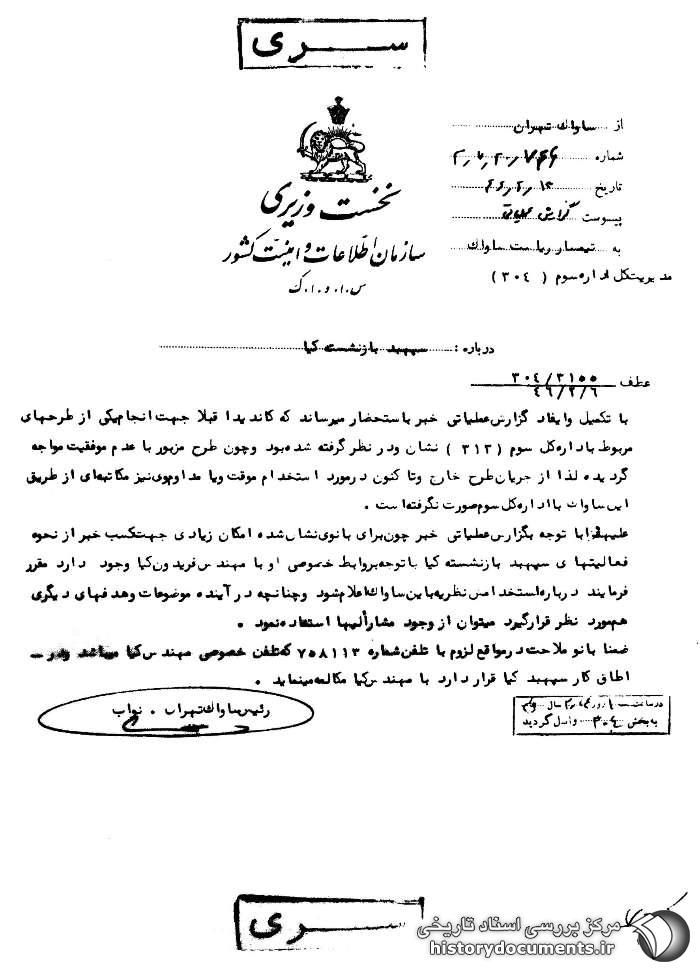 ســری
از ساواك تهران
شماره
تاریخ
پیوست گزارش عملیاتی
به تیمسار ریاست ساواك
مدیریت کل اداره سوم ( ۳۰۴ )
نخست وزیری
سازمان اطلاعات و امنیت کشور
س . ا . و . ا . ک
درباره : سپهبد بازنشسته کیا
عطف ۳۰۴/۳۱۵۵
۴۶/۲/۶
با تکمیل وایفاد گزارش عملیاتی خبر باستحضار میرساند که کاندیدا قبلا جهت انجام یکی از طرحهای
مربوط باداره کل سوم ( ۳۱۳ ) نشان ودر نظر گرفته شده بود وچون طرح مزبور با عدم موفقیت مواجه
گردیده لذا از جریان طرح خارج وتا کنون درمورد استخدام موقت ویا مداوم وی نیز مکاتبه‌ای از طریق
این ساواك بااداره کل سوم صورت نگرفته است .
علیهذا با توجه بگزارش عملیاتی خبر چون برای بانوی نشان شده امکان زیادی جهت کسب خبر از نحوه
فعالیتهای سپهبد بازنشسته کیا با توجه بروابط خصوصی او با مهندس فریدون کیا وجود دارد مقرر
فرمایند درباره استخدامش نظریه باین ساواك اعلام شود وچنانچه در آینده موضوعات وهدفهای دیگری
هم مورد نظر قرار گیرد میتوان از وجود مشارالیها استفاده نمود .
ضمنا بانو ملاحت در مواقع لزوم با تلفن شماره ۷۵۸۱۱۳ که تلفن خصوصی مهندس کیا میباشد ودر
اطاق کار سپهبد کیا قرار دارد با مهندس کیا مکالمه مینماید .
رئیس ساواك تهران . نواب
در ساعت روز سال
به بخش ۳۰۴ واصل گردید
ســری
مرکز بررسی اسناد تاریخی
historydocuments.ir